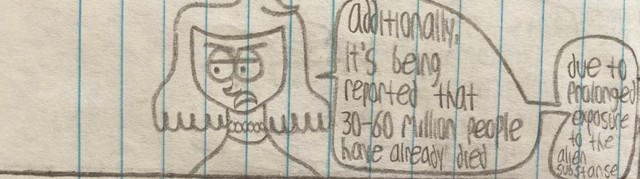 additionally,
it's being
reported that
30-60 Million people
have already died
due to
prolonged
exposure
to the
alien
substanse